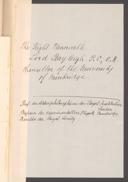 The Right Honourable
Lord Rayleigh, P.C., O.M.
Chancellor of the University
of Cambridge
Prof. of Natural Philosophy in the Royal Institution
London
Professor of Experimental Physics Cambridge
Royal Society